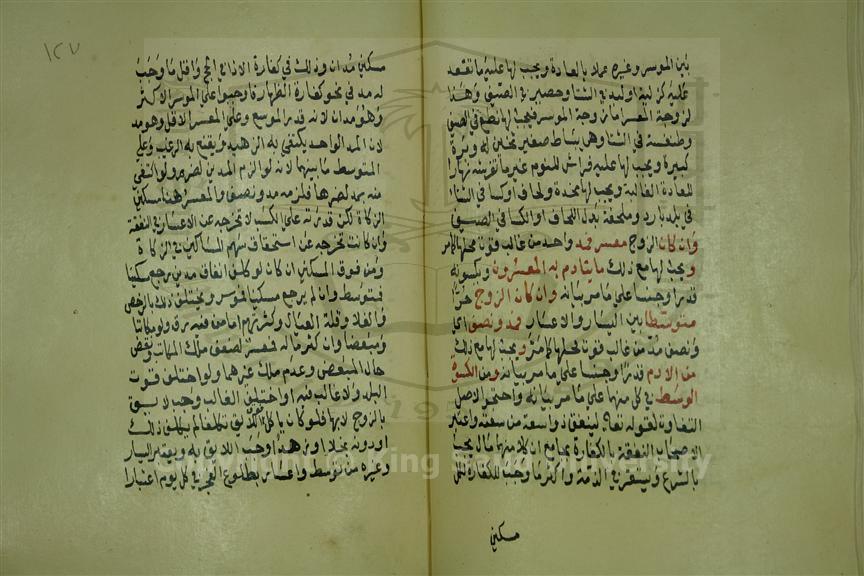 بين الموسر وغيره عملا بالعادة ويجب لها عليه ما تقعد
عليه كزلية او لبد في الشتا وحصير في الصيف وهذا
لزوجة المعسر اما زوجة الموسر فيجب لها نطع في الصيف
وطنفسة في الشتا وهي بساط صغير ثخين له وبرة
كبيرة ويجب لها عليه فراش للنوم غير ما تفرشه نهارا
للعادة الغالبة ويجب لها مخدة ولحاف او كسا في الشتا
في بلد بارد وملحفة بدل اللحاف او الكسا في الصيف
وان كان الزوج معسر فمد واحد من غالب قوت محلها كما مر
ويجب لها مع ذلك ما يتادم به المعسرون ويكسونه
قدرا وجنسا على ما مر بيانه وان كان الزوج حرا
متوسطا بين اليسار والاعسار فمد ونصف اي
ونصف مد من غالب قوت محلها كما مر ويجب لها مع ذلك
من الادم قدرا وجنسا على ما مر بيانه ومن الكسوة
الوسط في كل منهما على ما مر بيانه واحتجوا لاصل
التفاوت لقوله تعالى لينفق ذو سعة من سعته واعتبر
الاصحاب النفقة بالكفارة بجامع ان كلا منهما مال يجب
بالشرع ويستقر في الذمة واكثر ما وجب للكفارة لكل
مسكين
١٢٧
مسكين مدان وذلك في كفارة الاذا في الحج واقل ما وجب
له مد في نحو كفارة الظهار فاوجبوا على الموسر الاكثر
وهو مدان لانه قدر الموسع وعلى المعسر الاقل وهو مد
لان المد الواحد يكتفي به الزهيد ويقنع به الرغيب وعلى
المتوسط ما بينهما لانه لو الزم المدين لضره ولو اكتفى
منه بمد لضرها فلزمه مد ونصف والمعسر هنا مسكين
الزكاة لكن قدرته على الكسب لا تخرجه عن الاعسار في النفقة
وان كانت تخرجه عن استحقاق سهم المساكين في الزكاة
ومن فوق المسكين ان كان لو كلف انفاق مدين يرجع مسكينا
فمتوسط وان لم يرجع مسكينا فموسر ويختلف ذلك بالرخص
والغلا وقلة العيال وكثرتهم اما من فيه رق ولو مكاتبا
ومبعضا وان كثر ماله فمعسر لضعف ملك المكاتب ونقص
حال المبعض وعدم ملك غيرهما ولو اختلف قوت
البلد ولا غالب فيه او اختلف الغالب وجب لايق
بالزوج لا بها فلو كان ياكل فوق اللائق تكلفا لم يكلف ذلك
او دونه بخلا او زهدا وجب اللايق به ويعتبر اليسار
وغيره من توسط واعسار بطلوع الفجر في كل يوم اعتبارا
Copyright © King Saud University